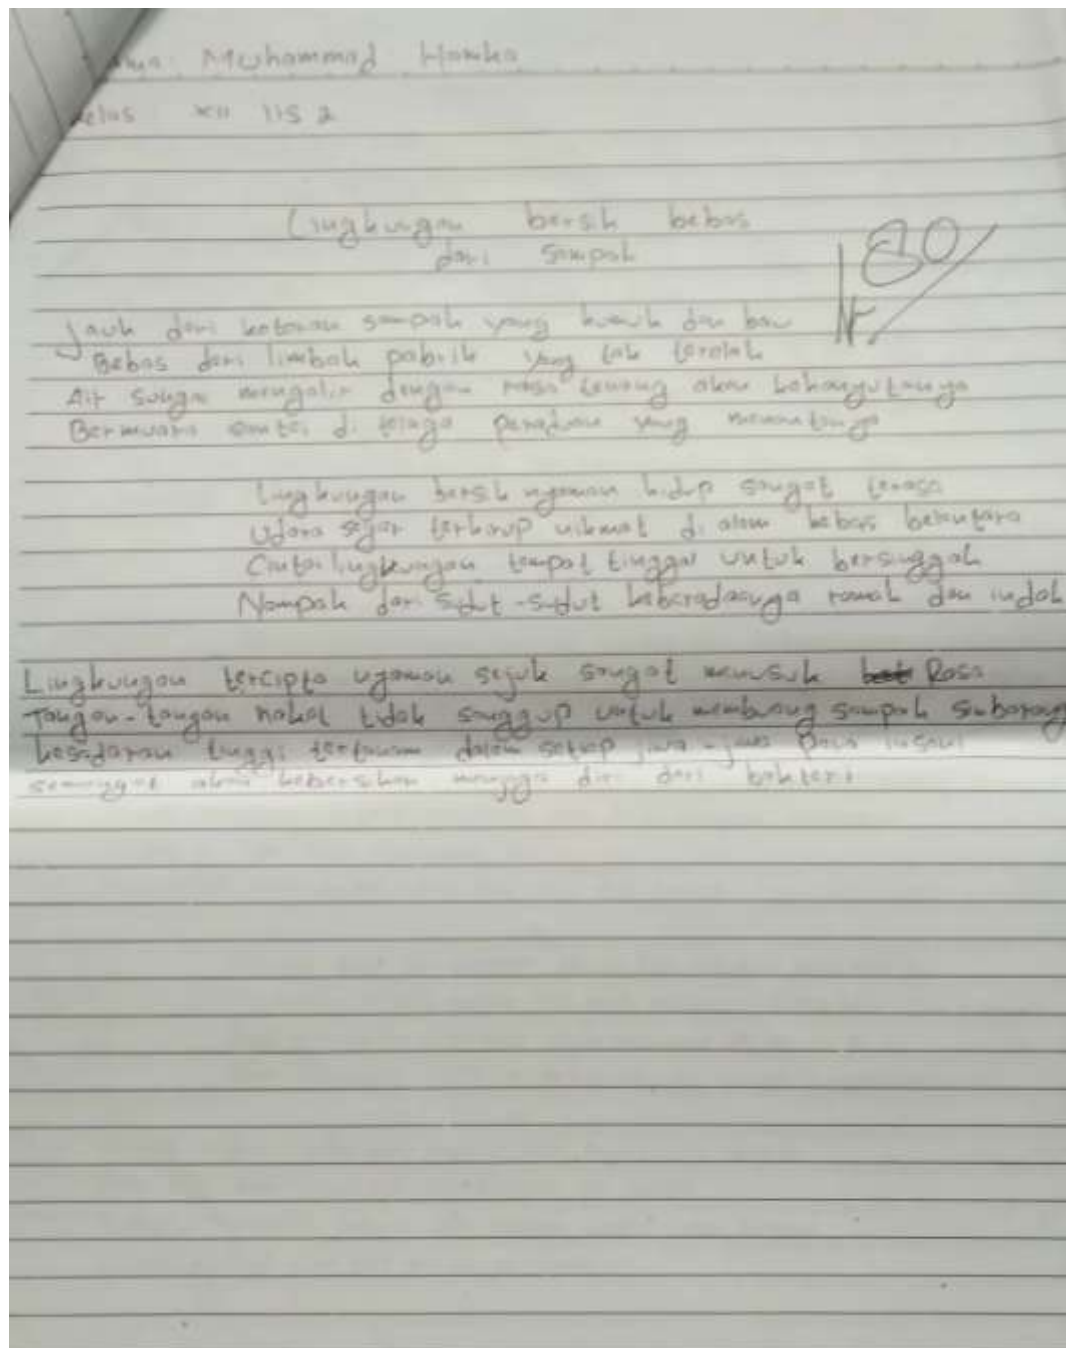 Muhammad Hamka
Kelas XII IIS 2
Lingkungan bersih bebas
dari sampah
80
Jauh dari kotoran sampah yang busuk dan bau
Bebas dari limbah pabrik yang tak terolah
Air sungai mengalir dengan rasa tenang akan kehanyutannya
Bermuara santai di telaga peraduan yang menantinya
Lingkungan bersih nyaman hidup sangat terasa
Udara segar terhirup nikmat di alam bebas belantara
Cintai lingkungan tempat tinggal untuk bersinggah
Nampak dari sudut-sudut keberadaanya ramah dan indah
Lingkungan tercipta nyaman sejuk sangat menusuk Rasa
Tangan-tangan nakal tidak sanggup untuk membuang sampah sebarang
kesadaran tinggi tertanam dalam setiap jiwa-jiwa para insani
semangat akan kebersihan menjaga diri dari bakteri